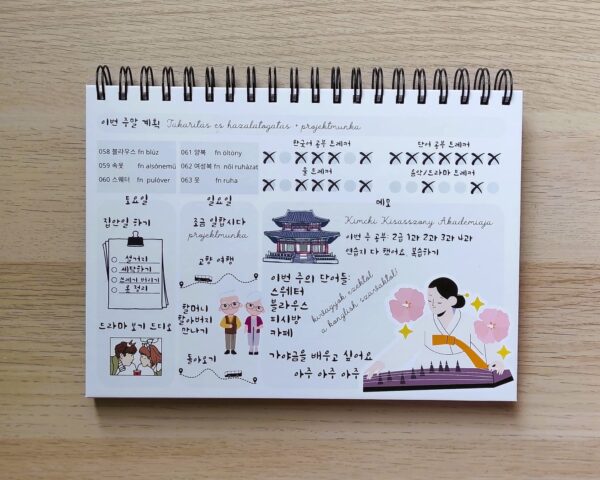 이번 주말 계획 Takaritas es hazalatogatas + projektmunka
058 블라우스 fn blúz
059 속옷 fn alsónemű
060 스웨터 fn pulóver
061 양복 fn öltöny
062 여성복 fn női ruházat
063 옷 fn ruha
한국어 공부 트래커
물 트래커
단어 공부 트래커
음악/드라마 트래커
토요일
집안일 하기
설거지
세탁하기
쓰레기 버리기
드라마 보기 드디어
일요일
조금 일합시다
projektmunka
고향 여행
할머니
할아버지
만나기
돌아오기
메모
Kimchi Kisasszony Akademiaja
이번 주 공부: 2급 1과 2과 3과 4과
연습지 다 했어요. 복습하기
이번 주의 단어들:
스웨터
블라우스
피시방
카페
a konglish szavakkal!
가야금을 배우고 싶어요
아주 아주 아주